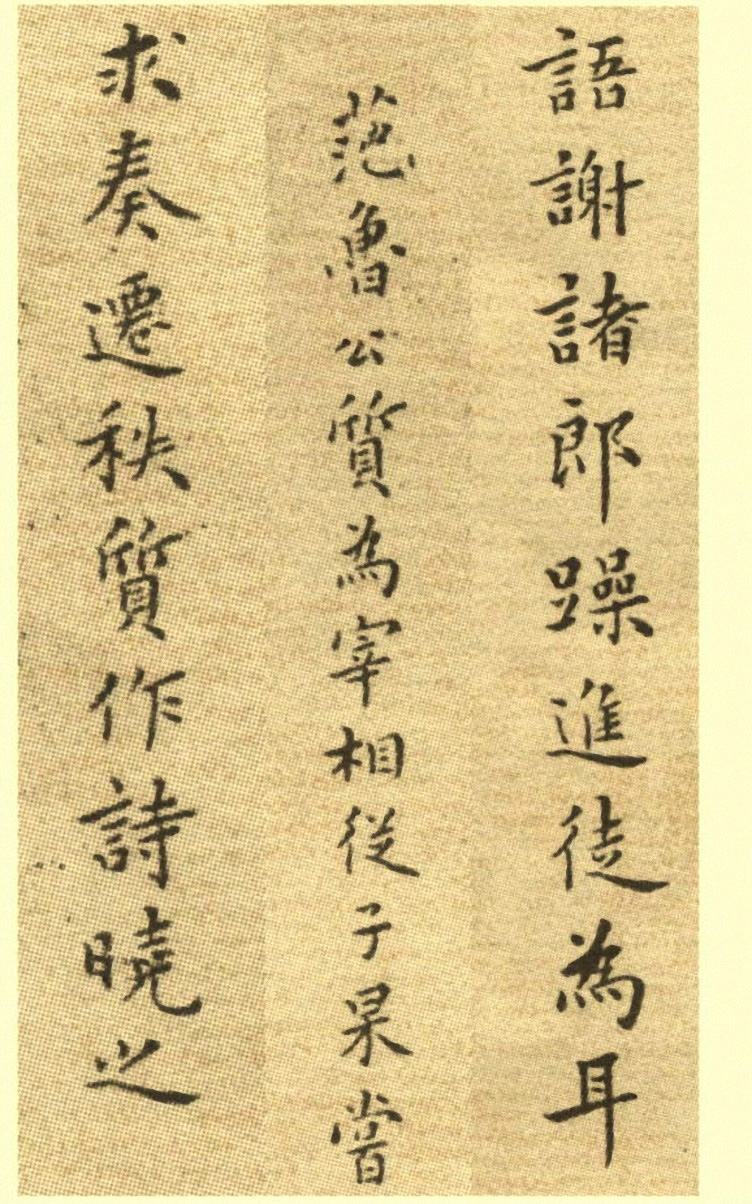 語謝諸郎躁進徒為耳
范魯公質為宰相從子杲嘗
求奏遷秩質作詩曉之